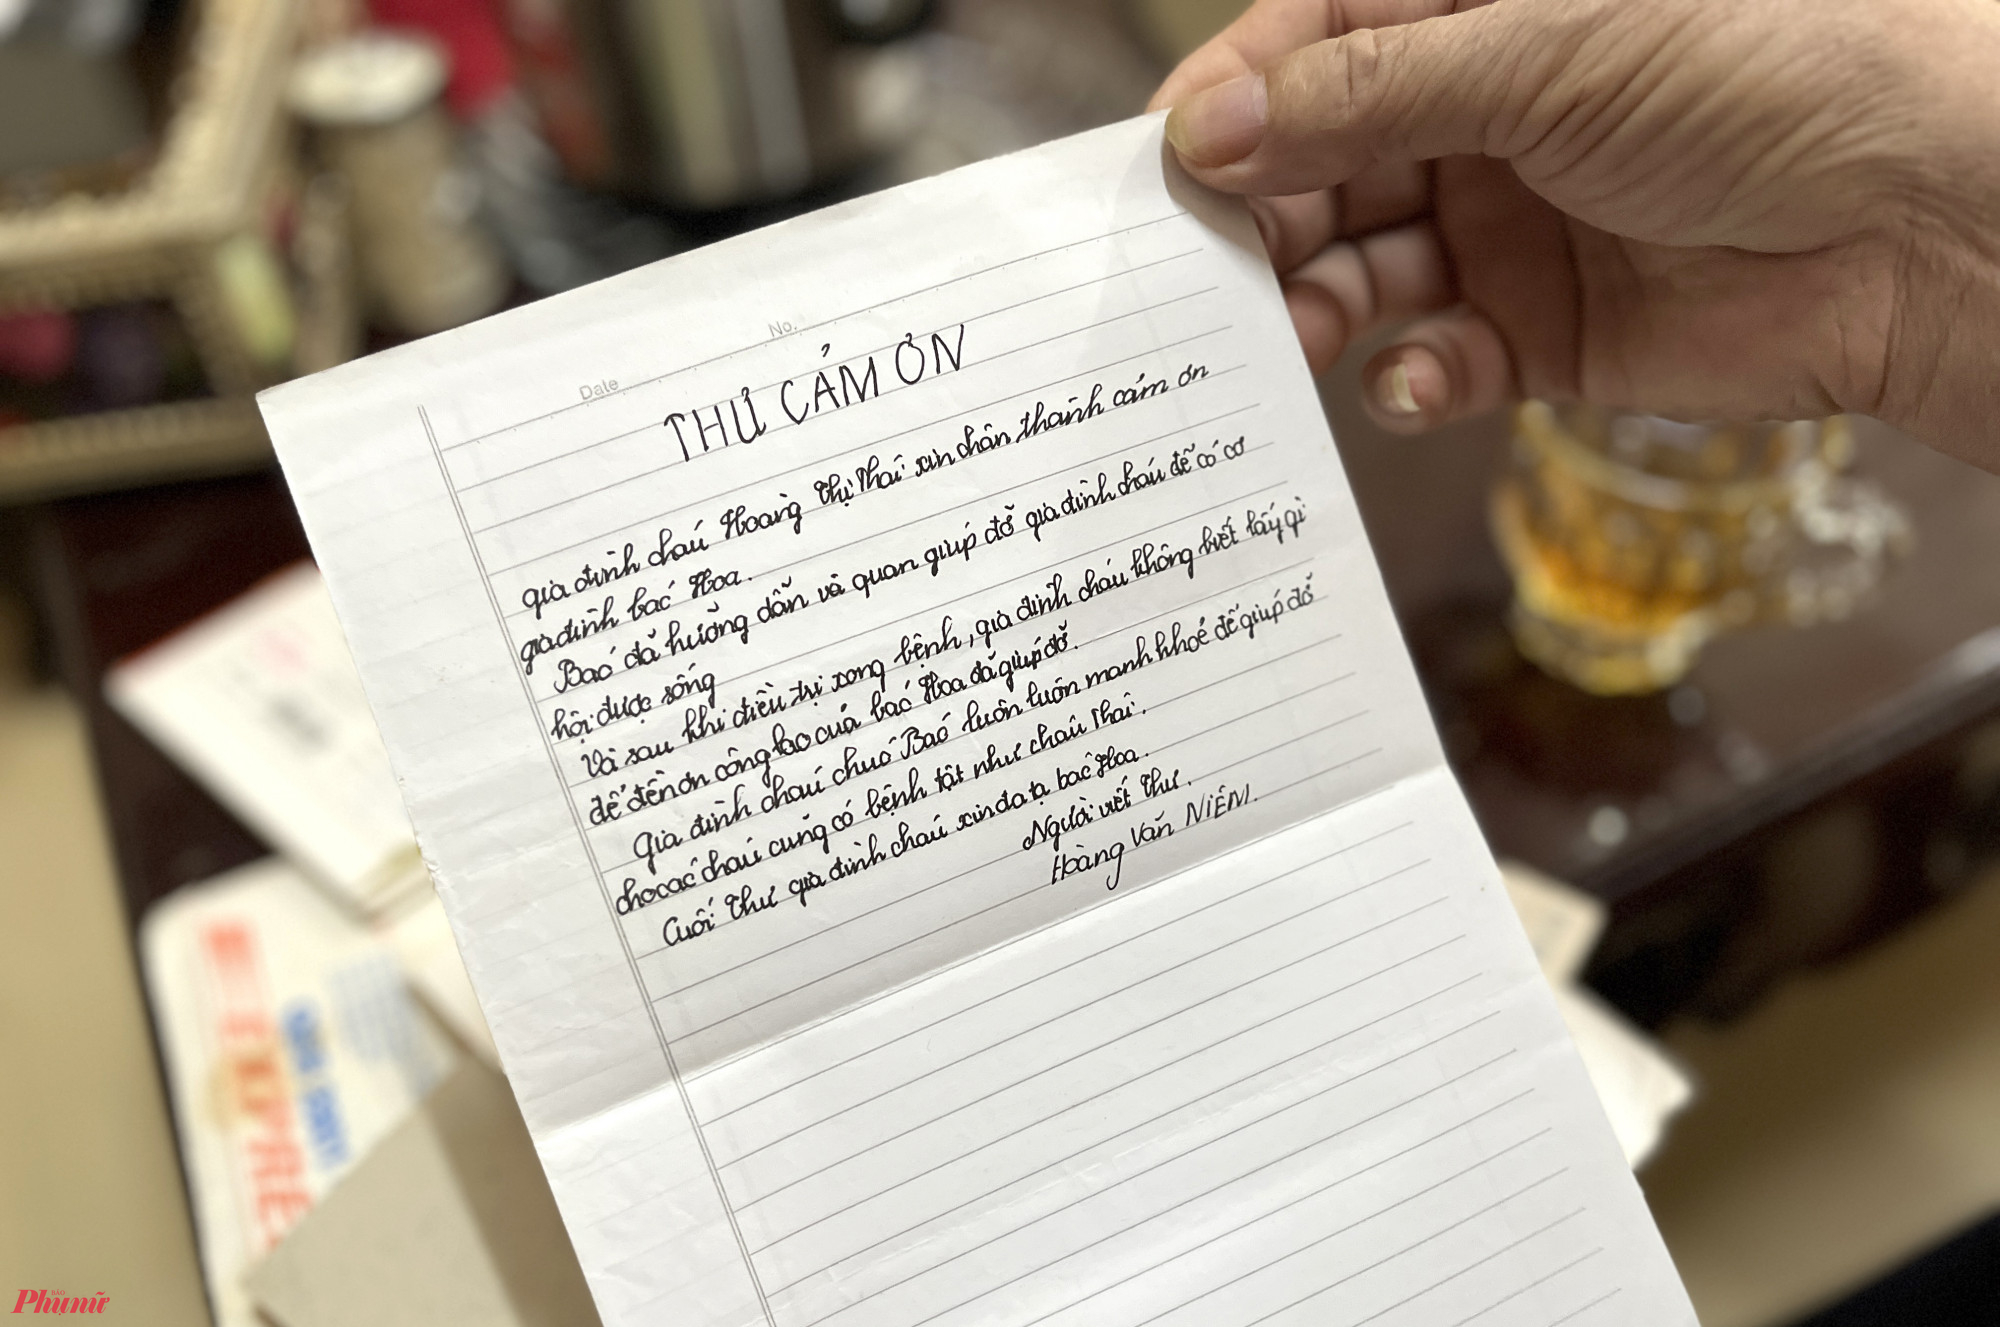 No.
Date
THƯ CẢM ƠN
gia đình cháu Hoàng Thị Thái xin chân thành cám ơn
gia đình bác Hoa.
Bác đã hướng dẫn và quan giúp đỡ gia đình cháu để có cơ
hội được sống
Và sau khi điều trị xong bệnh, gia đình cháu không biết lấy gì
để đền ơn công lao của bác Hoa đã giúp đỡ.
Gia đình cháu chúc Bác luôn luôn mạnh khoẻ để giúp đỡ
cho các cháu cũng có bệnh tật như cháu Thái.
Cuối thư gia đình cháu xin đa tạ bác Hoa.
Người viết thư.
Hoàng Văn NIỀM.
EXPRE
BÁO
Phụ nữ